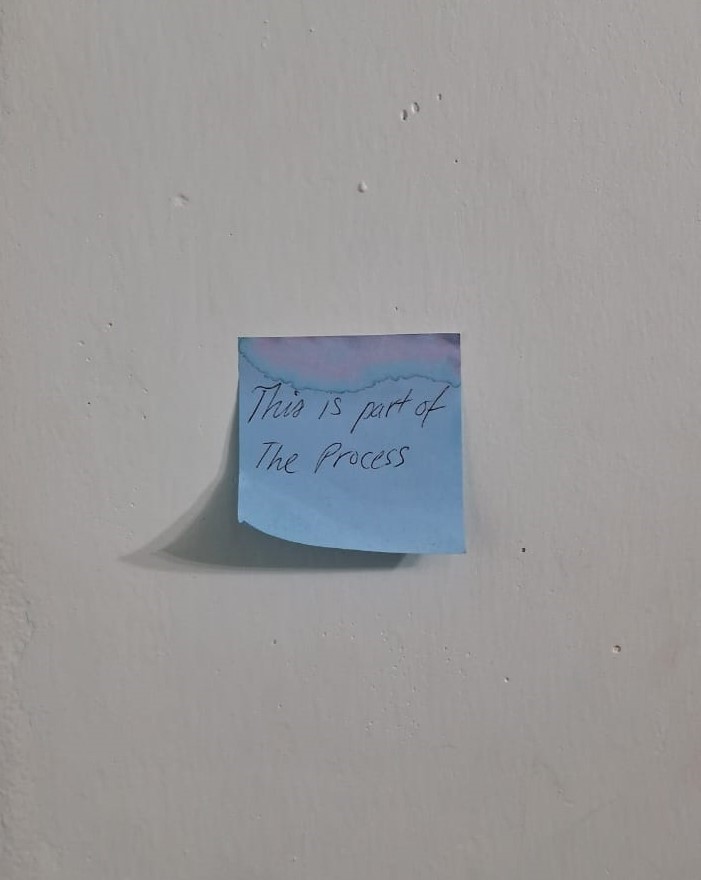 This is part of
The Process